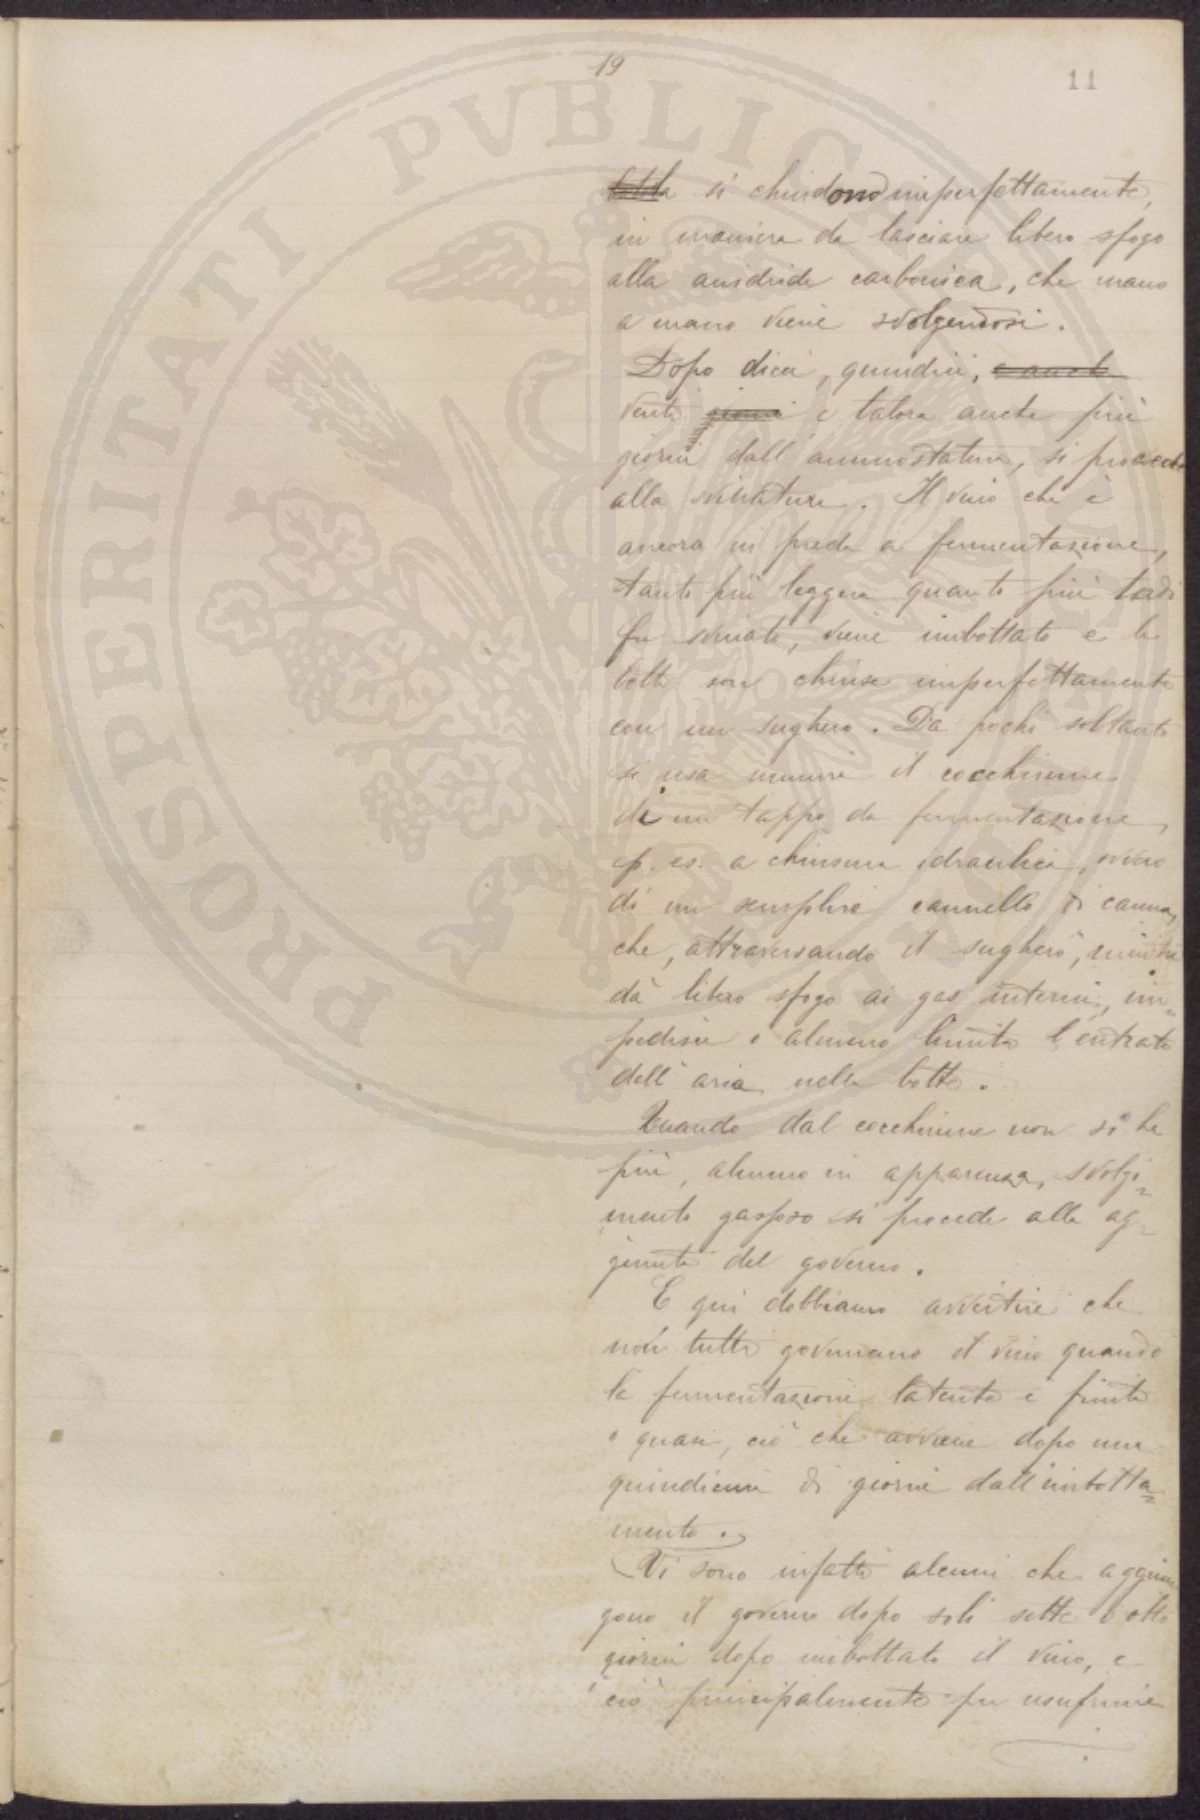 19
11
botte si chiudono imperfettamente,
in maniera da lasciare libero sfogo
alla anidride carbonica, che mano
a mano viene svolgendosi.
Dopo dieci, quindici, e anche
venti giorni e talora anche più
giorni dall'ammostatura, si procede
alla svinatura. Il vino che è
ancora in preda a fermentazione,
tanto più leggera quanto più tardi
fu svinato, viene imbottato e le
botti son chiuse imperfettamente
con un sughero. Da pochi soltanto
si usa munire il cocchiume
di un tappo da fermentazione,
p. es. a chiusura idraulica, ovvero
di un semplice cannello di canna,
che, attraversando il sughero, mentre
dà libero sfogo ai gas interni, im=
pedisce o almeno limita l'entrata
dell'aria nella botte.
Quando dal cocchiume non si ha
più, almeno in apparenza, svolgi=
mento gassoso si procede alla ag=
giunta del governo.
E qui dobbiamo avvertire che
non tutti governano il vino quando
la fermentazione latente è finita
o quasi, ciò che avviene dopo una
quindicina di giorni dall'imbotta=
mento.
Vi sono infatti alcuni che aggiun
gono il governo dopo soli sette o otto
giorni dopo imbottato il vino, e
ciò principalmente per usufruire
PROSPERITATI PVBLIC